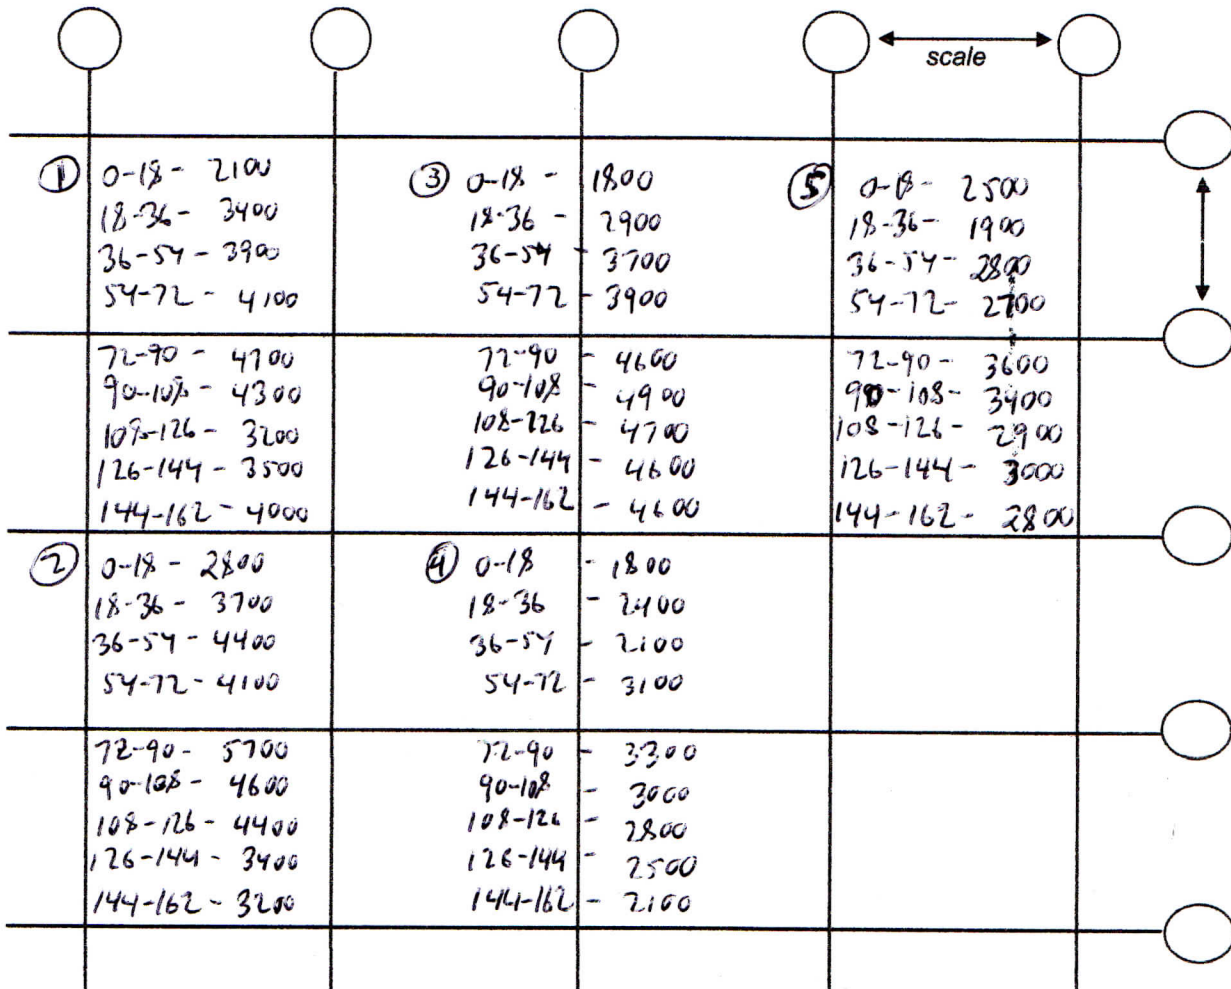 scale
① 0-18 - 2100
18-36 - 3400
36-54 - 3900
54-72 - 4100
72-90 - 4700
90-108 - 4300
108-126 - 3200
126-144 - 3500
144-162 - 4000
② 0-18 - 2800
18-36 - 3700
36-54 - 4400
54-72 - 4100
72-90 - 5700
90-108 - 4600
108-126 - 4400
126-144 - 3400
144-162 - 3200
③ 0-18 - 1800
18-36 - 2900
36-54 - 3700
54-72 - 3900
72-90 - 4600
90-108 - 4900
108-226 - 4700
126-144 - 4600
144-162 - 4600
④ 0-18 - 1800
18-36 - 2400
36-54 - 2100
54-72 - 3100
72-90 - 3300
90-108 - 3000
108-126 - 2800
126-144 - 2500
144-162 - 2100
⑤ 0-18 - 2500
18-36 - 1900
36-54 - 2800
54-72 - 2700
72-90 - 3600
90-108 - 3400
108-126 - 2900
126-144 - 3000
144-162 - 2800